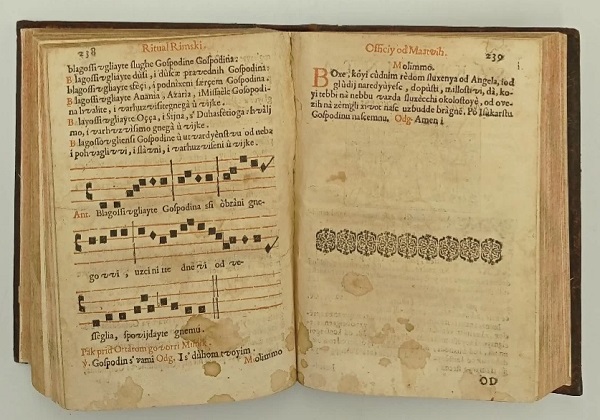 238
Ritual Rimski.
blagossivgliayte slughe Gospodine Gospodina:
Blagossivgliayte dusi, i dusicæ pravednih Gospodina:
blagossivgliayte sfeçi, i podnixeni særçem Gospodina.
Blagossivgliayte Anania, Azaria, i Missaèle Gospodi-
na hvalite, i varhuzvisitegnegà ù vijke.
Blagossivgliayte Oçça, i Sijna, s' Duhasfetioga: hvàlj
mo, i varhuzvisimo gnegà ù vijke.
Blagossovgliensi Gospodine ù utvardyènstvu od neba
i pohvaglivvi, i slàvni, i varhuzvuleni ù vijke.
Ant. Blagossivgliayte Gospodina ssi òbràni gne-
govvi, uzcinite dnevi od ve-
sseglia, spovijdayte gnemu.
Pak prid Oltàrom govorri Misnik.
℣. Gospodin s' vami Odg. I s' duhom tvoyim.
Molimmo
Officiy od Maarvih.
239
Molimmo.
BOxe, kòyi cùdnim rèdom sluxenya od Angela, i od
gliùdij naredyùyesc, dopùsti, millostivi, dà, ko-
yi tebbi nà nebbu vazda sluxècchi okolostoyè, od ove-
zih nà zèmgli xivot nasc uzbudde brágnè. Pò Isukarstu
Gospodinu nascemnu. Odg. Amen i
OD